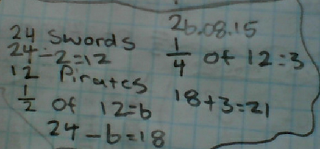 24 swords
24÷2=12
12 Pirates
1/2 of 12=6
24-6=18
26.08.15
1/4 of 12=3
18+3=21